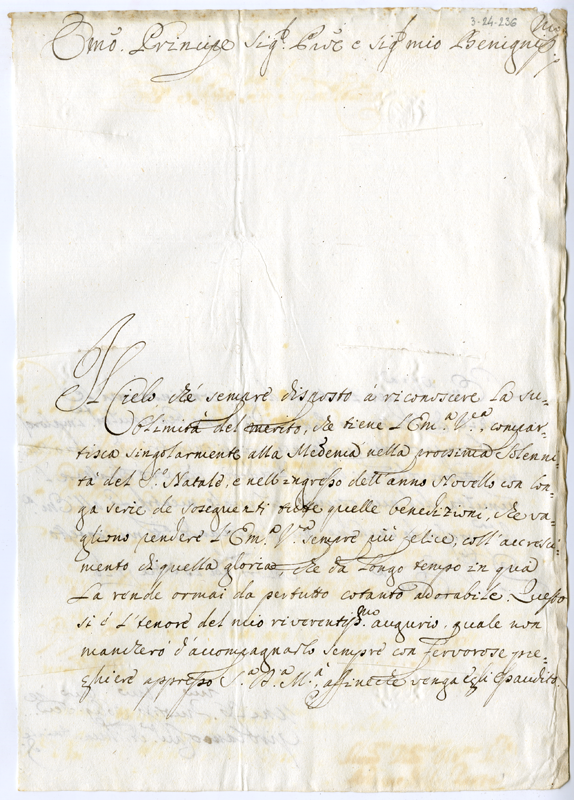 3-24-236
Emo. Principe Sigr. Prõe e sigr mio Benignis
Il Cielo ch'é sempre disposto á riconoscere la su-
blimitá del merito, che tiene l'Em.a V.ra, compar-
tisca singolarmente alla Medema nella prossima solenni-
tá del S. Natale, e nell'ingresso dell'anno Novello con lon-
ga serie de sosequenti tutte quelle benedizioni, che va-
gliono rendere l'Em.a V.ra sempre piú felice, coll'accresci-
mento di quella gloria, che da longo tempo in qua
la rende ormai da pertutto cotanto adorabile. Questo
si é l'tenore del mio riverentis.mo augurio, quale non
mancheró d'accompagnarlo sempre con fervorose pre-
ghiere appresso S.a D.a M.a, affinché venga egli esaudito